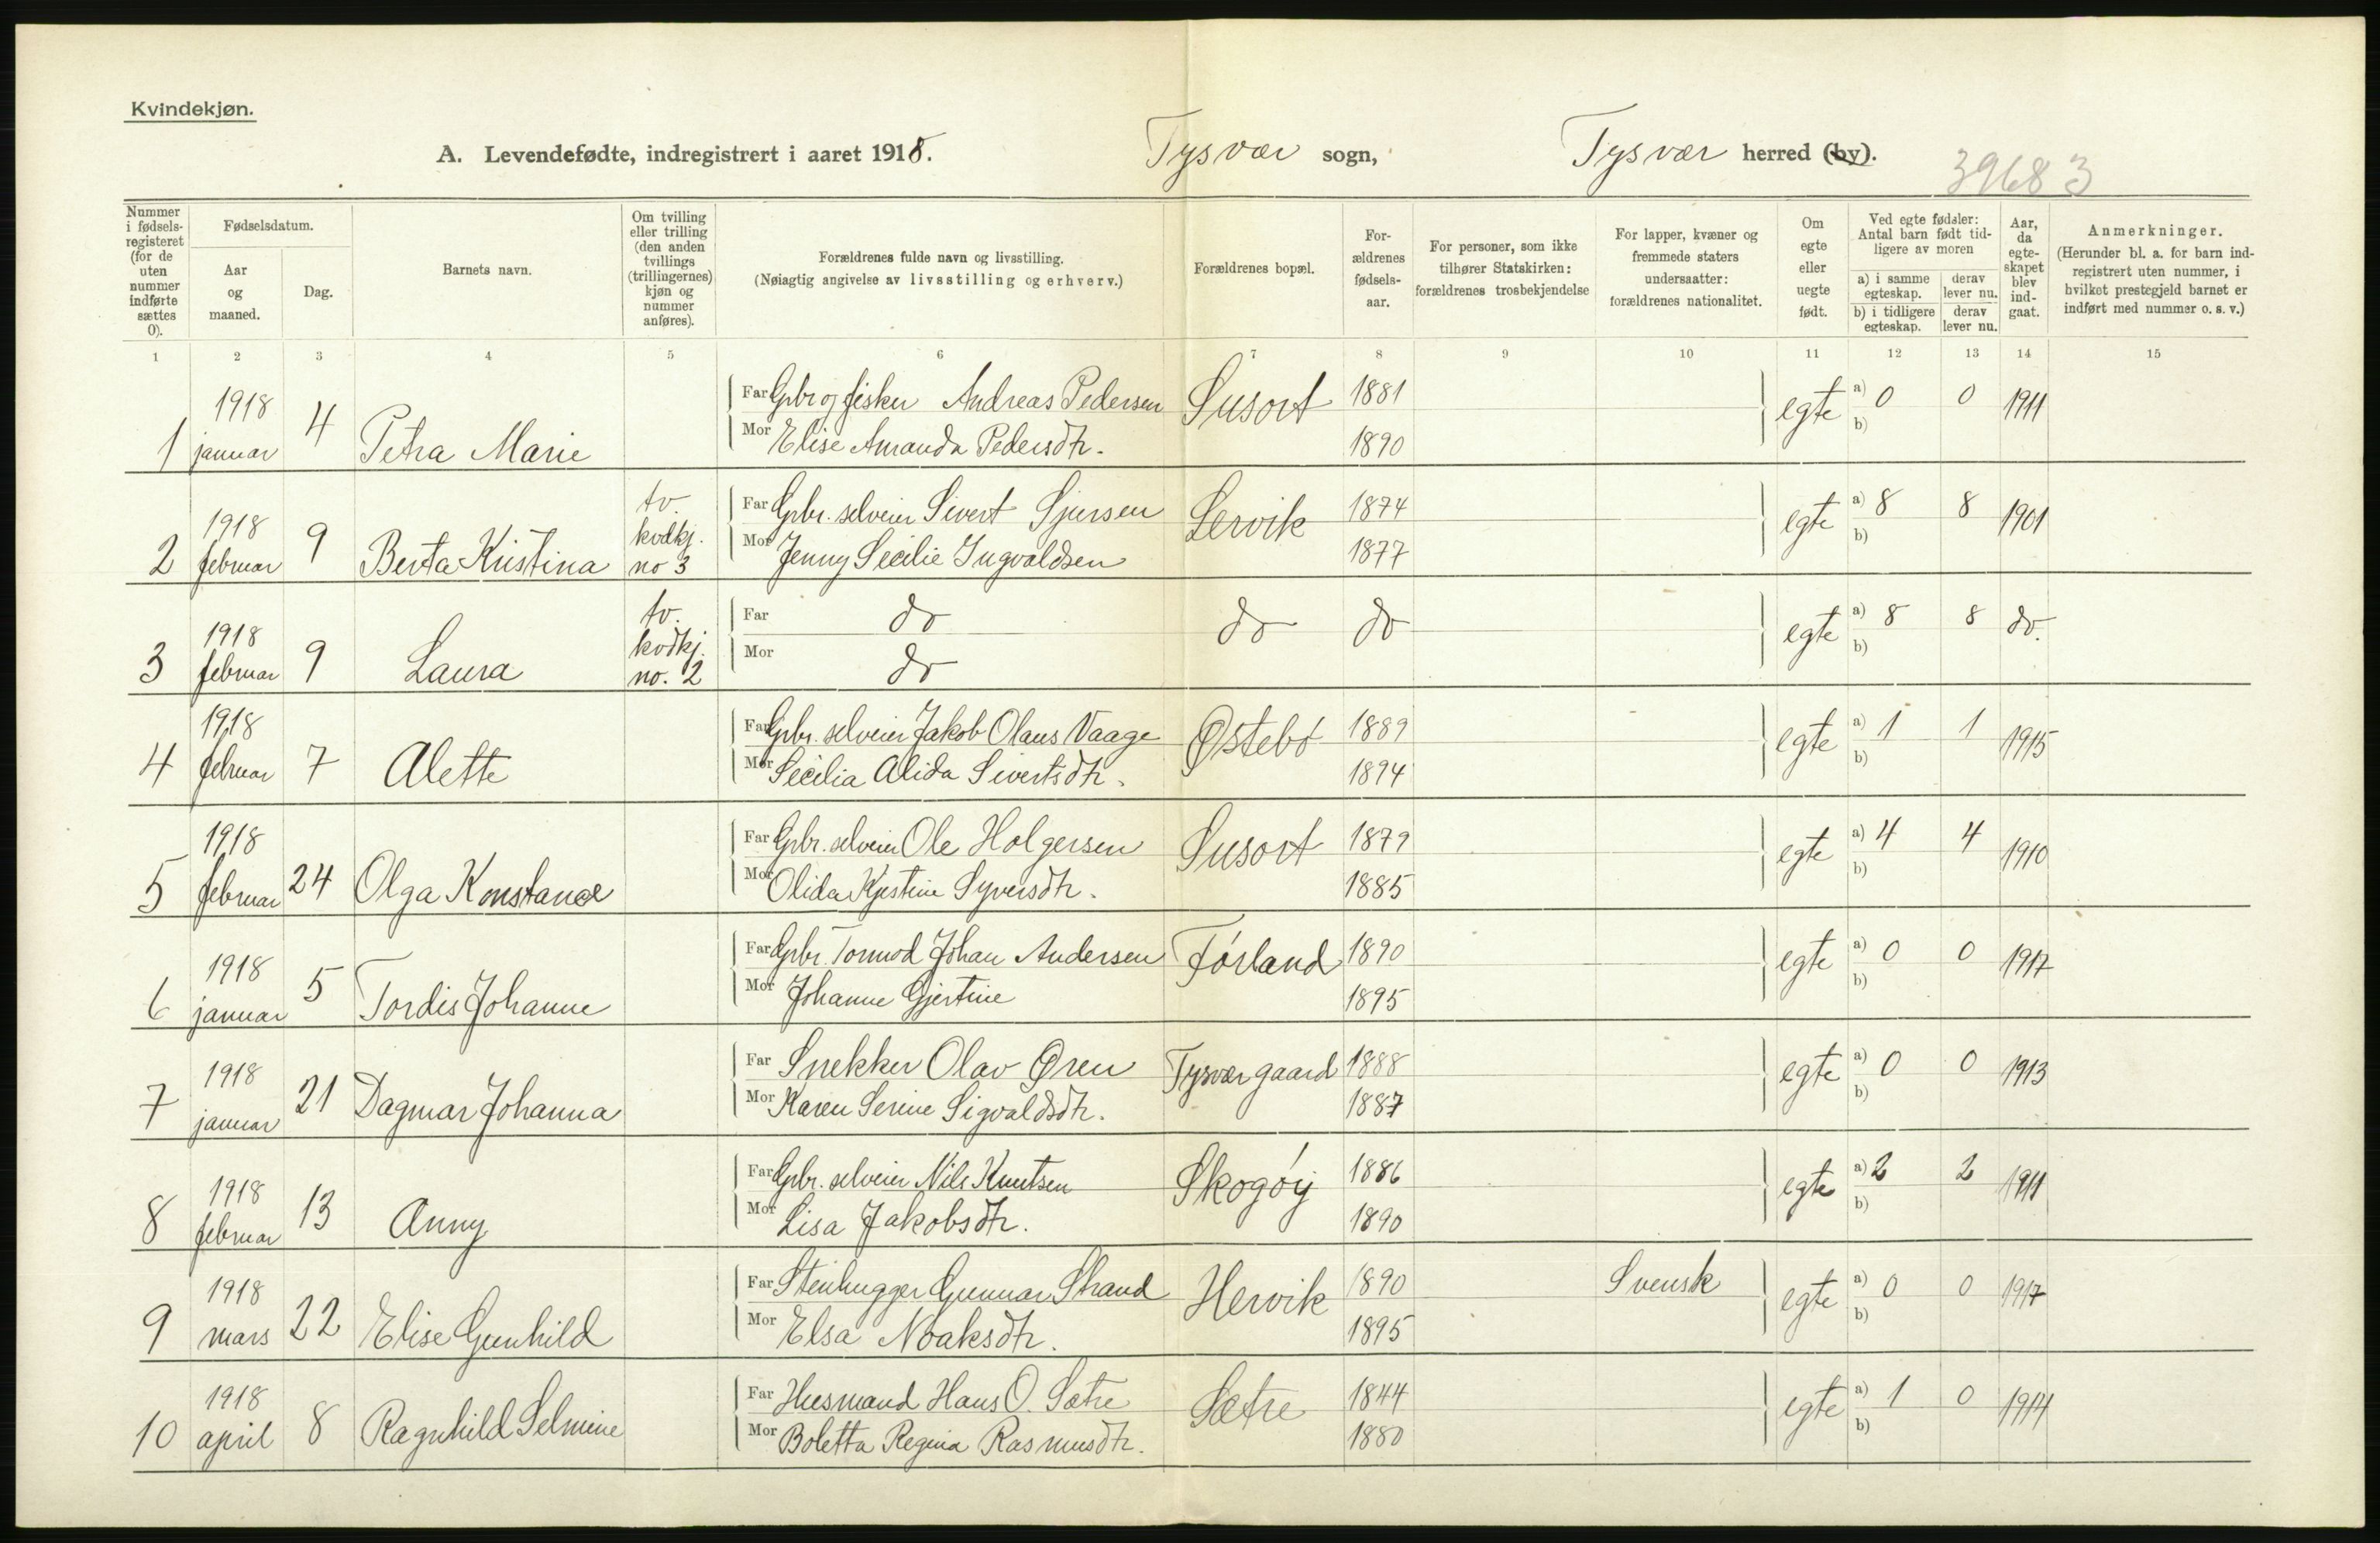 Kvindekjøn.
A. Levendefødte, indregistrert i aaret 1918. Tysvær sogn, Tysvær herred (by).
39683
Nummer i fødsels-registeret (for de uten nummer indførte sættes 0).
Fødselsdatum.
Aar og maaned.
Dag.
Barnets navn.
Om tvilling eller trilling (den anden tvillings (trillingernes) kjøn og nummer anføres).
Forældrenes fulde navn og livsstilling.
(Nøiagtig angivelse av livsstilling og erhverv.)
Forældrenes bopæl.
For-ældrenes fødsels-aar.
For personer, som ikke tilhører Statskirken: forældrenes trosbekjendelse
For lapper, kvæner og fremmede staters undersaatter: forældrenes nationalitet.
Om egte eller uegte født.
Ved egte fødsler: Antal barn født tid-ligere av moren
a) i samme egteskap. derav lever nu.
b) i tidligere egteskap. derav lever nu.
Aar, da egte-skapet blev ind-gaat.
Anmerkninger.
(Herunder bl. a. for barn ind-registrert uten nummer, i hvilket prestegjeld barnet er indført med nummer o. s. v.)
1 2 3 4 5 6 7 8 9 10 11 12 13 14 15
1 1918 januar 4 Petra Marie Far Gbr og fisker Andreas Pedersen Susort 1881 egte a) 0 0 1911
Mor Elise Amanda Pedersdtr. 1890 b)
2 1918 februar 9 Berta Kristina tv. kvdkj. no 3 Far Gbr. selveier Sivert Sjursen Lervik 1874 egte a) 8 8 1901
Mor Jenny Secilie Ingvaldsen 1877 b)
3 1918 februar 9 Laura tv. kvdkj. no. 2 Far do do do egte a) 8 8 do.
Mor do b)
4 1918 februar 7 Alette Far Gbr. selveier Jakob Olaus Vaage Østebø 1889 egte a) 1 1 1915
Mor Secilia Alida Sivertsdtr. 1894 b)
5 1918 februar 24 Olga Konstance Far Gbr. selveier Ole Holgersen Susort 1879 egte a) 4 4 1910
Mor Olida Kjestine Syversdtr. 1885 b)
6 1918 januar 5 Tordis Johanne Far Gbr. Tormod Johan Andersen Førland 1890 egte a) 0 0 1917
Mor Johanne Gjertine 1895 b)
7 1918 januar 21 Dagmar Johanna Far Snekker Olav Øren Tysværgaard 1888 egte a) 0 0 1913
Mor Karen Serine Sigvaldsdtr. 1887 b)
8 1918 februar 13 Anny Far Gbr. selveier Nils Knutsen Skogøy 1886 egte a) 2 2 1911
Mor Lisa Jakobsdtr. 1890 b)
9 1918 mars 22 Elise Gunhild Far Stenhugger Gunnar Strand Hervik 1890 Svensk egte a) 0 0 1917
Mor Elsa Noaksdtr. 1895 b)
10 1918 april 8 Ragnhild Selmine Far Husmand Hans O. Sætre Sætre 1844 egte a) 1 0 1914
Mor Boletta Regina Rasmusdtr. 1880 b)